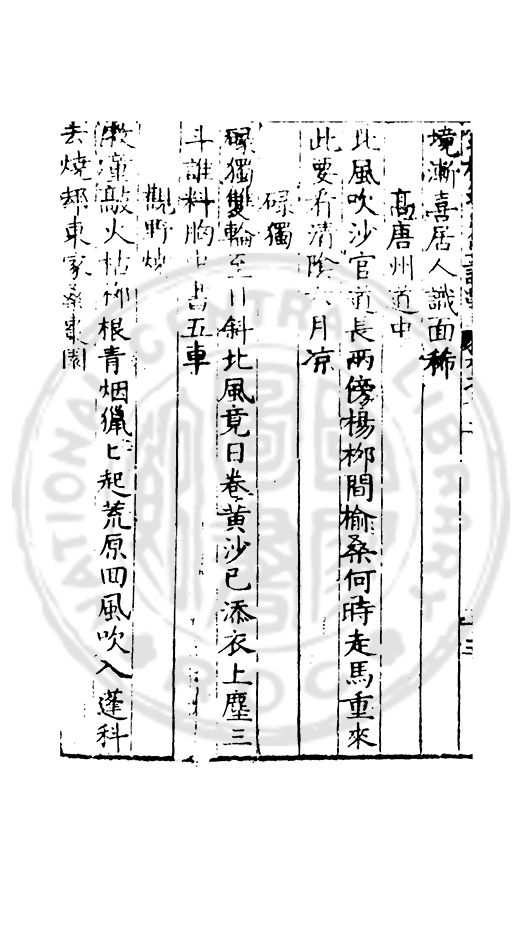 境漸喜居人識面稀
高唐州道中
北風吹沙官道長兩傍楊柳間榆桑何時走馬重來
此要看清陰六月凉
碌獨
碌獨雙輪至日斜北風竟日卷黄沙已添衣上塵三
斗誰料胸中書五車
觀野燒
牧童敲火枯柳根青烟獵匕起荒原回風吹入蓬科
去燒却東家桑棗園
NATIONAL CENTRAL LIBRARY